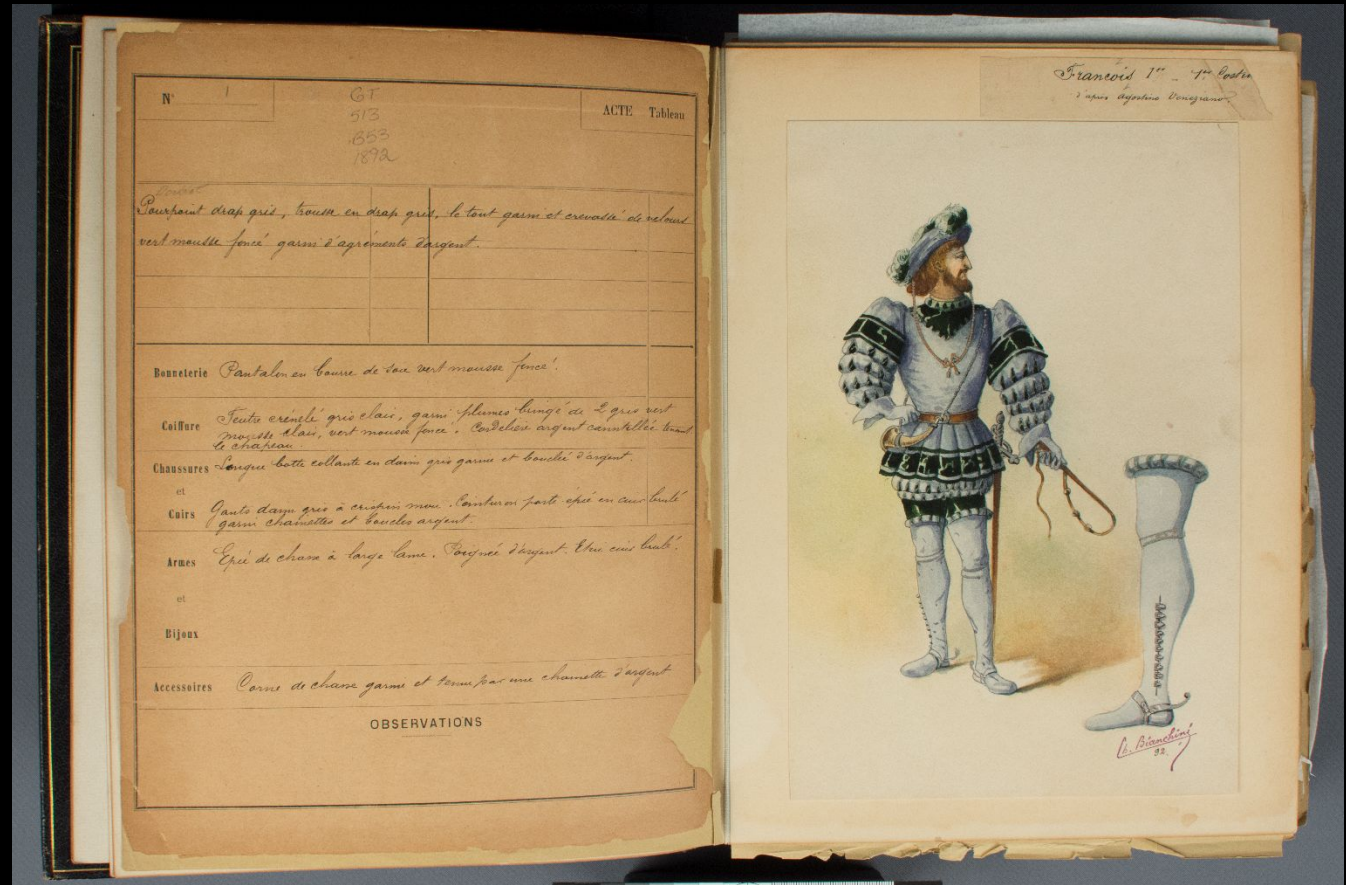 N° 1
GT
513
.B53
1892
ACTE Tableau
Pourpoint drap gris, trousse en drap gris, le tout garni et crevassé de velours
vert mousse foncé garni d'agréments d'argent.
Bonneterie Pantalon en bourre de soie vert mousse foncé.
Coiffure Feutre crénelé gris clair, garni plumes de 2 gris vert
mousse clair, vert mousse foncé. Cordelière argent cannetillée tenant
le chapeau
Chaussures Longue botte collante en daim gris garnie et bouclée d'argent.
et
Cuirs Gants daim gris à crispin mou. Ceinturon porte épée en cuir brulé
garni chainettes et boucles argent.
Armes Epée de chasse à large lame. Poignée d'argent. Etui cuir brulé.
et
Bijoux
Accessoires Corne de chasse garnie et tenue par une chainette d'argent
OBSERVATIONS
François 1er _ 1er Costu
d'après Agostino Veneziano.
Ch. Bianchini
92.